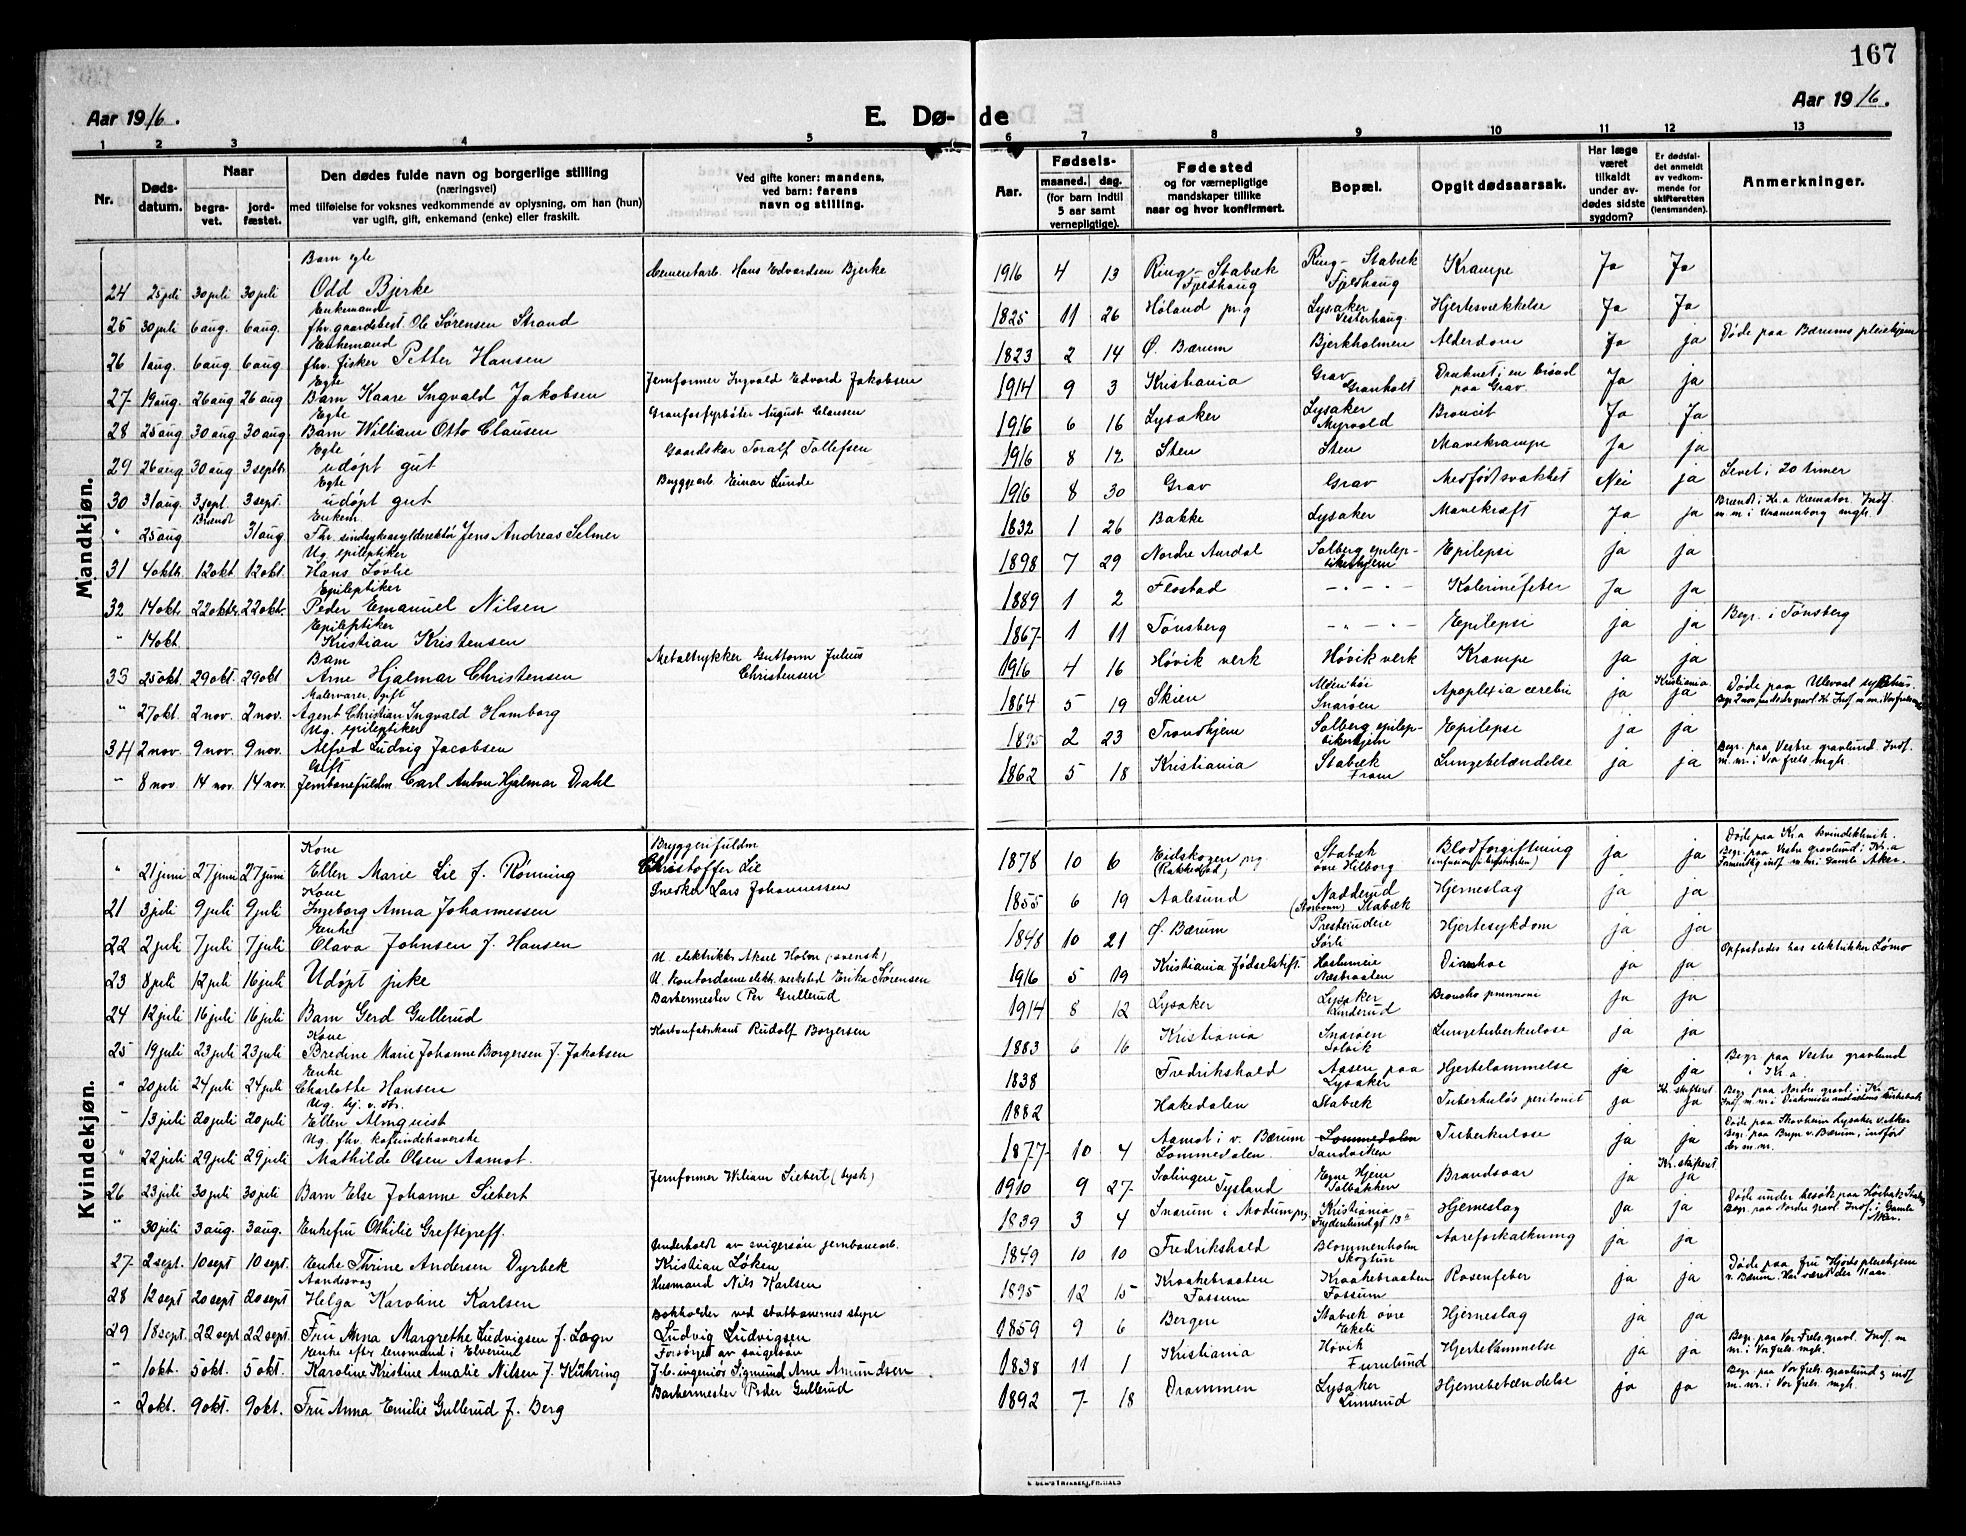 167
Aar 1916.
E. Dø-
de
Aar 1916.
1 2 3 4 5 6 7 8 9 10 11 12 13
Nr.
Døds-
datum.
Naar
begra-
vet.
jord-
fæstet.
Den dødes fulde navn og borgerlige stilling
(næringsvei)
med tilføielse for voksnes vedkommende av oplysning, om han (hun)
var ugift, gift, enkemand (enke) eller fraskilt.
Ved gifte koner: mandens,
ved barn: farens
navn og stilling.
Aar.
Fødsels-
maaned. dag.
(for barn indtil
5 aar samt
vernepligtige).
Fødested
og for værnepligtige
mandskaper tillike
naar og hvor konfirmert.
Bopæl.
Opgit dødsaarsak.
Har læge
været
tilkaldt
under av-
dødes sidste
sygdom?
Er dødsfal-
det anmeldt
av vedkom-
mende for
skifteretten
(lensmanden).
Anmerkninger.
Mandkjøn.
Barn egte
24 25 juli 30 juli 30 juli Odd Bjerke Cementarb. Hans Edvardsen Bjerke 1916 4 13 Ring-Stabæk Ring-Stabæk Krampe Ja Ja
Enkemand
25 30 juli 6 aug. 6 aug. fhv. gaardsbest. Ole Sørensen Strand 1825 11 26 Høland prg Lysaker Vesterhaug Hjertesvækkelse Ja Ja
Enkemand
26 1 aug. 6 aug 6 aug fhv. fisker Petter Hansen 1823 2 14 Ø. Bærum Bjerkholmen Alderdom Ja ja Døde paa Bærums pleiehjem
Egte
27 19 aug. 26 aug 26 aug Barn Kaare Ingvald Jakobsen Jernformer Ingvald Edvard Jakobsen 1914 9 3 Kristiania Grav Granholt Druknet i en paa Grav. Ja ja
Egte
28 25 aug 30 aug 30 aug. Barn William Otto Clausen Granfosfyrbøter August Clausen 1916 6 16 Lysaker Lysaker Myrvold Broncit Ja Ja
Egte
29 26 aug 30 aug 3 septbr. udøpt gut Gaardskar Toralf Tollefsen 1916 8 12 Sten Sten Mavekrampe Ja ja
Egte
30 31 aug. 3 sept. 3 sept. udøpt gut Byggearb. Einar Lunde 1916 8 30 Grav Grav Medfødt svakhet Nei ja Levet i 20 timer
Enkem.
" 25 aug Brændt 31 aug Fhv. sindsykeasyldirektør Jens Andreas Selmer 1832 1 26 Bakke Lysaker Mavekræft Ja ja Brændt i Kr.a Kremator. Indf. m. m i Uranienborg mgh.
Ug. epileptiker
31 4 oktbr. 12 okt 12 okt. Hans Løvlie 1898 7 29 Nordre Aurdal Solberg epilep-tikerhjem Epilepsi ja ja
Epileptiker
32 14 okt. 22 oktbr. 22 okt. Peder Emanuel Nilsen 1889 1 2 Flostad - " - " - Kolerinefeber Ja ja
Epileptiker
" 14 okt Kristian Kristensen 1867 1 11 Tønsberg - " - " - Epilepsi ja ja Begr. i Tønsberg
Barn
33 25 okt. 29 okt. 29 okt Arne Hjalmar Christensen Metaltrykker Guttorm Julius Christensen 1916 4 16 Høvik verk Høvik verk Krampe ja ja
Malervarer, gift
" 27 okt. 2 nov. 2 nov. Agent Christian Ingvald Hamborg 1864 5 19 Skien Snarøen Apoplexia cerebri ja Kristiania ja Døde paa Ullevaal sykehus.
Ug. epileptiker
34 2 nov. 9 nov. 9 nov. Alfred Ludvig Jacobsen 1895 2 23 Trondhjem Solberg epilep-tikerhjem Epilepsi ja ja
Gift
" 8 nov. 14 nov. 14 nov. Jernbanefuldm. Carl Anton Hjalmar Dahl 1862 5 18 Kristiania Stabæk Fram Lungebetændelse ja ja Begr. paa Vestre gravlund. Indf. m. nr. i Vor frels. mgh.
Kvindekjøn.
Kone
" 21 juni 27 juni 27 juni Ellen Marie Lie f. Rønning Bryggerifuldm Christoffer Lie 1878 10 6 Eidskogen prg Stabæk øvre Hilborg Blodforgiftning ja ja Døde paa Kr.a Kvindeklinik. Begr. paa Vestre gravlund i Kr.a
Kone
21 3 juli 9 juli 9 juli Ingeborg Anna Johannessen Snekker Lars Johannessen 1855 6 19 Aalesund Nadderud Stabæk Hjerneslag ja ja
Enke
22 2 juli 7 juli 7 juli Olava Johnsen f. Hansen 1848 10 21 Ø. Bærum Presterudeie Sørli Hjertesykdom ja ja
23 8 juli 12 juli 16 juli Udøpt pike U. elektriker Aksel Holm (svensk) U. Kontordame elektr. verksted Erika Sørensen 1916 5 19 Kristiania Fødselstift. Haslumeie Næsbraaten Diarrhoe ja ja Opfostredes hos elektriker Lømo
24 12 juli 16 juli 16 juli Barn Gerd Gullerud Barbermester Per Gullerud 1914 8 12 Lysaker Lysaker Linderud Broncho pneumoni ja ja
Kone
25 19 juli 23 juli 23 juli Bredine Marie Johanne Borgersen f. Jakobsen Kartonfabrikant Rudolf Borgersen 1883 6 16 Kristiania Snarøen Solvik Lungetuberkulose ja ja
Enke
" 20 juli 24 juli 24 juli Charlotte Hansen 1838 Fredrikshald Aasen paa Lysaker Hjertelammelse ja ja Begr. paa Vestre gravlund i Kr.a.
" 13 juli 20 juli 20 juli Ellen Almquist 1882 Hakedalen Stabæk Tuberkuløs peritonit ja Kr. skifteret ja Begr. paa Nordre gravl. i Kr.a
Ug. fhv. kafeindehaverske
" 22 juli 29 juli 29 juli Mathilde Olsen Aamot. 1877 10 4 Aamot i v. Bærum Lommedalen Lommedalen Sandviken Tuberkulose ja ja Begr. paa Bryn v. Bærum, indført der m. nr.
26 23 juli 30 juli 30 juli Barn Else Johanne Siebert Jernformer Wiliam Siebert (tysk) 1910 9 27 Solingen Tysland Egne Hjem Solbakken Brandsaar ja Kr. skifteret ja
" 30 juli 3 aug. 3 aug. Enkefru Othilie Greftegreff. 1839 3 4 Snarum i Modum prg. Kristiania Hjerneslag ja ja Døde under besøk paa
27 2 sept. 10 sept 10 sept. Enke Thrine Andersen Dyrbek Underholdt av svigersøn jernbanearb. Kristian Løken 1849 10 10 Fredrikshald Blommenholm Skogtun Aareforkalkning ja ja
Aandssvag
28 12 sept 20 sept 20 sept Helga Karoline Karlsen Husmand Nils Karlsen 1895 12 15 Kraakebraaten Fossum Kraakebraaten Fossum Rosenfeber ja ja Døde paa fru Hjorts pleiehjem v. Bærum. Har været der 11 aar.
29 18 sept. 22 sept 22 sept. Fru Anna Margrethe Ludvigsen f. Sogn Bokholder ved statbanernes styre Ludvig Ludvigsen 1859 9 6 Bergen Stabæk øvre Ekeli Hjerneslag ja ja
Enke efter lensmand i Elverum
" 1 okt. 5 okt. 5 okt. Karoline Kristine Amalie Nilsen f. Kühring Forsørget av svigersøn J.b. ingeniør Sigmund Arne Amundsen 1838 11 1 Kristiania Høvik Furulund Hjertelammelse ja ja Begr. paa Vor Frels. gravl. Indf. m nr. i Vor frels. mgh.
" 2 okt. 9 okt. 9 okt. Fru Anna Emilie Gullerud f. Berg Barbermester Peder Gullerud 1892 7 18 Drammen Lysaker Linnerud Hjernebetændelse ja ja Begr. paa Vor frels. gravlund og indf m. nr. i Vor frels. mgh.